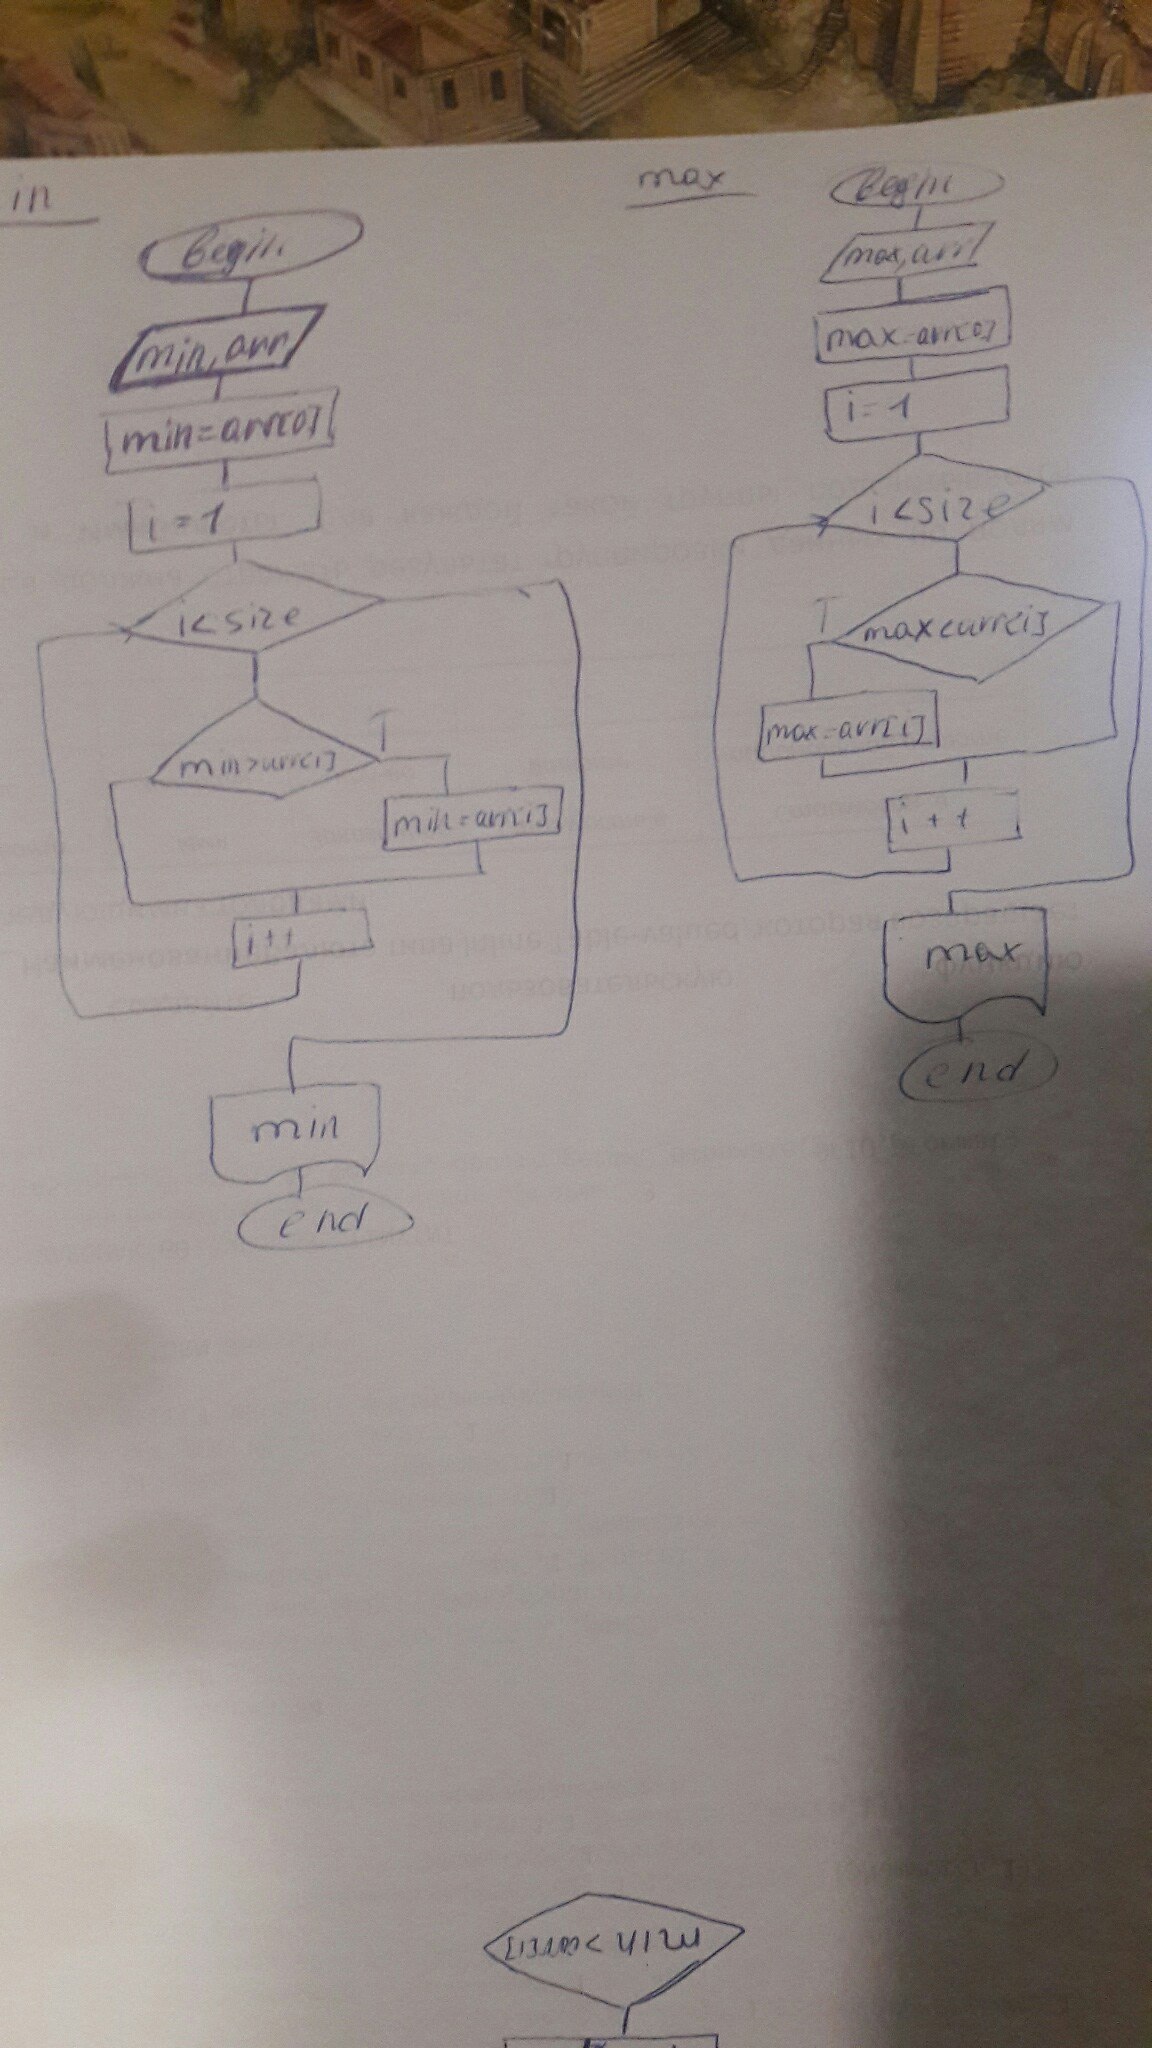 in
Begin
min, arr
min=arr[0]
i=1
i<size
min>arr[i]
T
min=arr[i]
i++
min
end
max
Begin
max, arr
max=arr[0]
i=1
i<size
T
max<arr[i]
max=arr[i]
i++
max
end
min>arr[i]